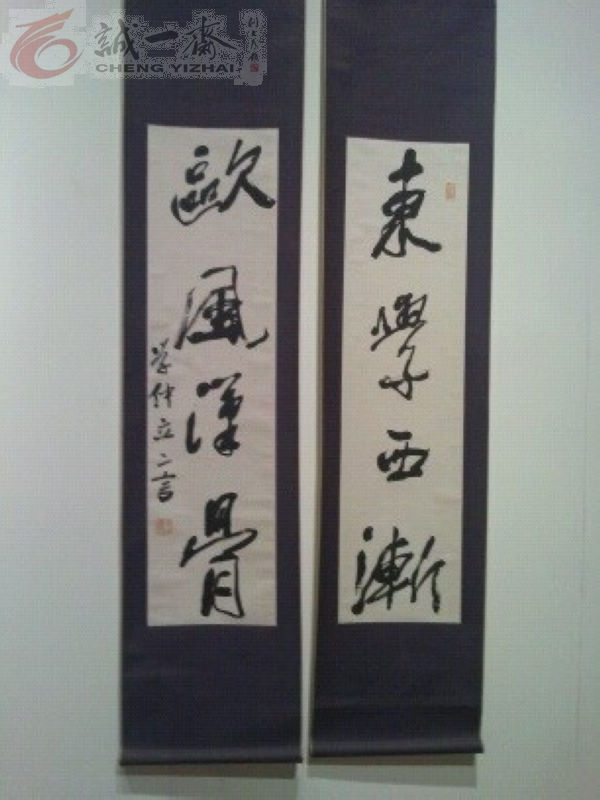 誠一齋
CHENG YIZHAI
東學西漸
歐風漢骨
學仲立言